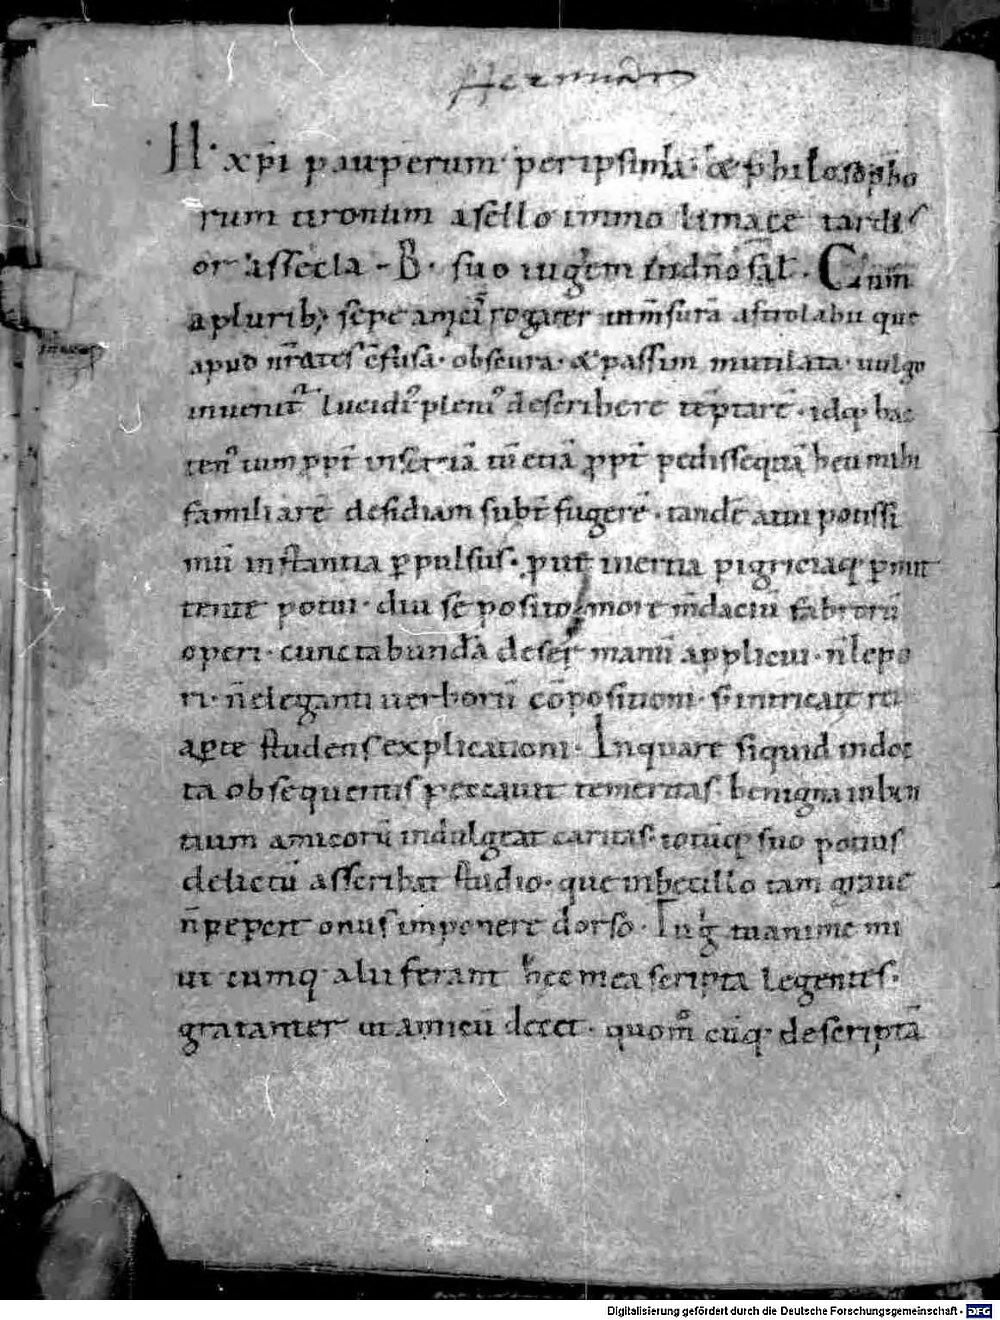 Herman
H· xpi pauperum peripsima· & philosopho
rum tironum asello immo limace tardi
or assecla - B· suo iugem in dno sal· Cum
a plurib; sepe amicis rogarer mensura astrolabii que
apud nrates cfusa· obscura· & passim mutilata· uulgo
inuenit lucidi pleni describere teptare· idq hac
ten tum ppt inertia tu etia ppt pedissequa heu mihi
familiare desidiam subt fugere· tande
instantia ppulsus· put inertia pigriciaq pmit
tente potui· diu se posito more mdaciu fabroru
operi· cunctabunda manu applicui· n lepo
ri· n eleganti uerboru copositioni· s intricate rei
apte studens explicationi· In quare siquid indoc
ta obsequentis peccauit temeritas· benigna iuben
tium amicoru indulgeat caritas· totuq suo potius
delictu asscribat studio· que inbecillo tam graue
n pepercit onus imponere dorso· Tu g mi
ut cumq alii ferant hec mea scripta legentes·
gratanter ut amicu decet· quom cuq· descripta
Digitalisierung gefördert durch die Deutsche Forschungsgemeinschaft - DFG